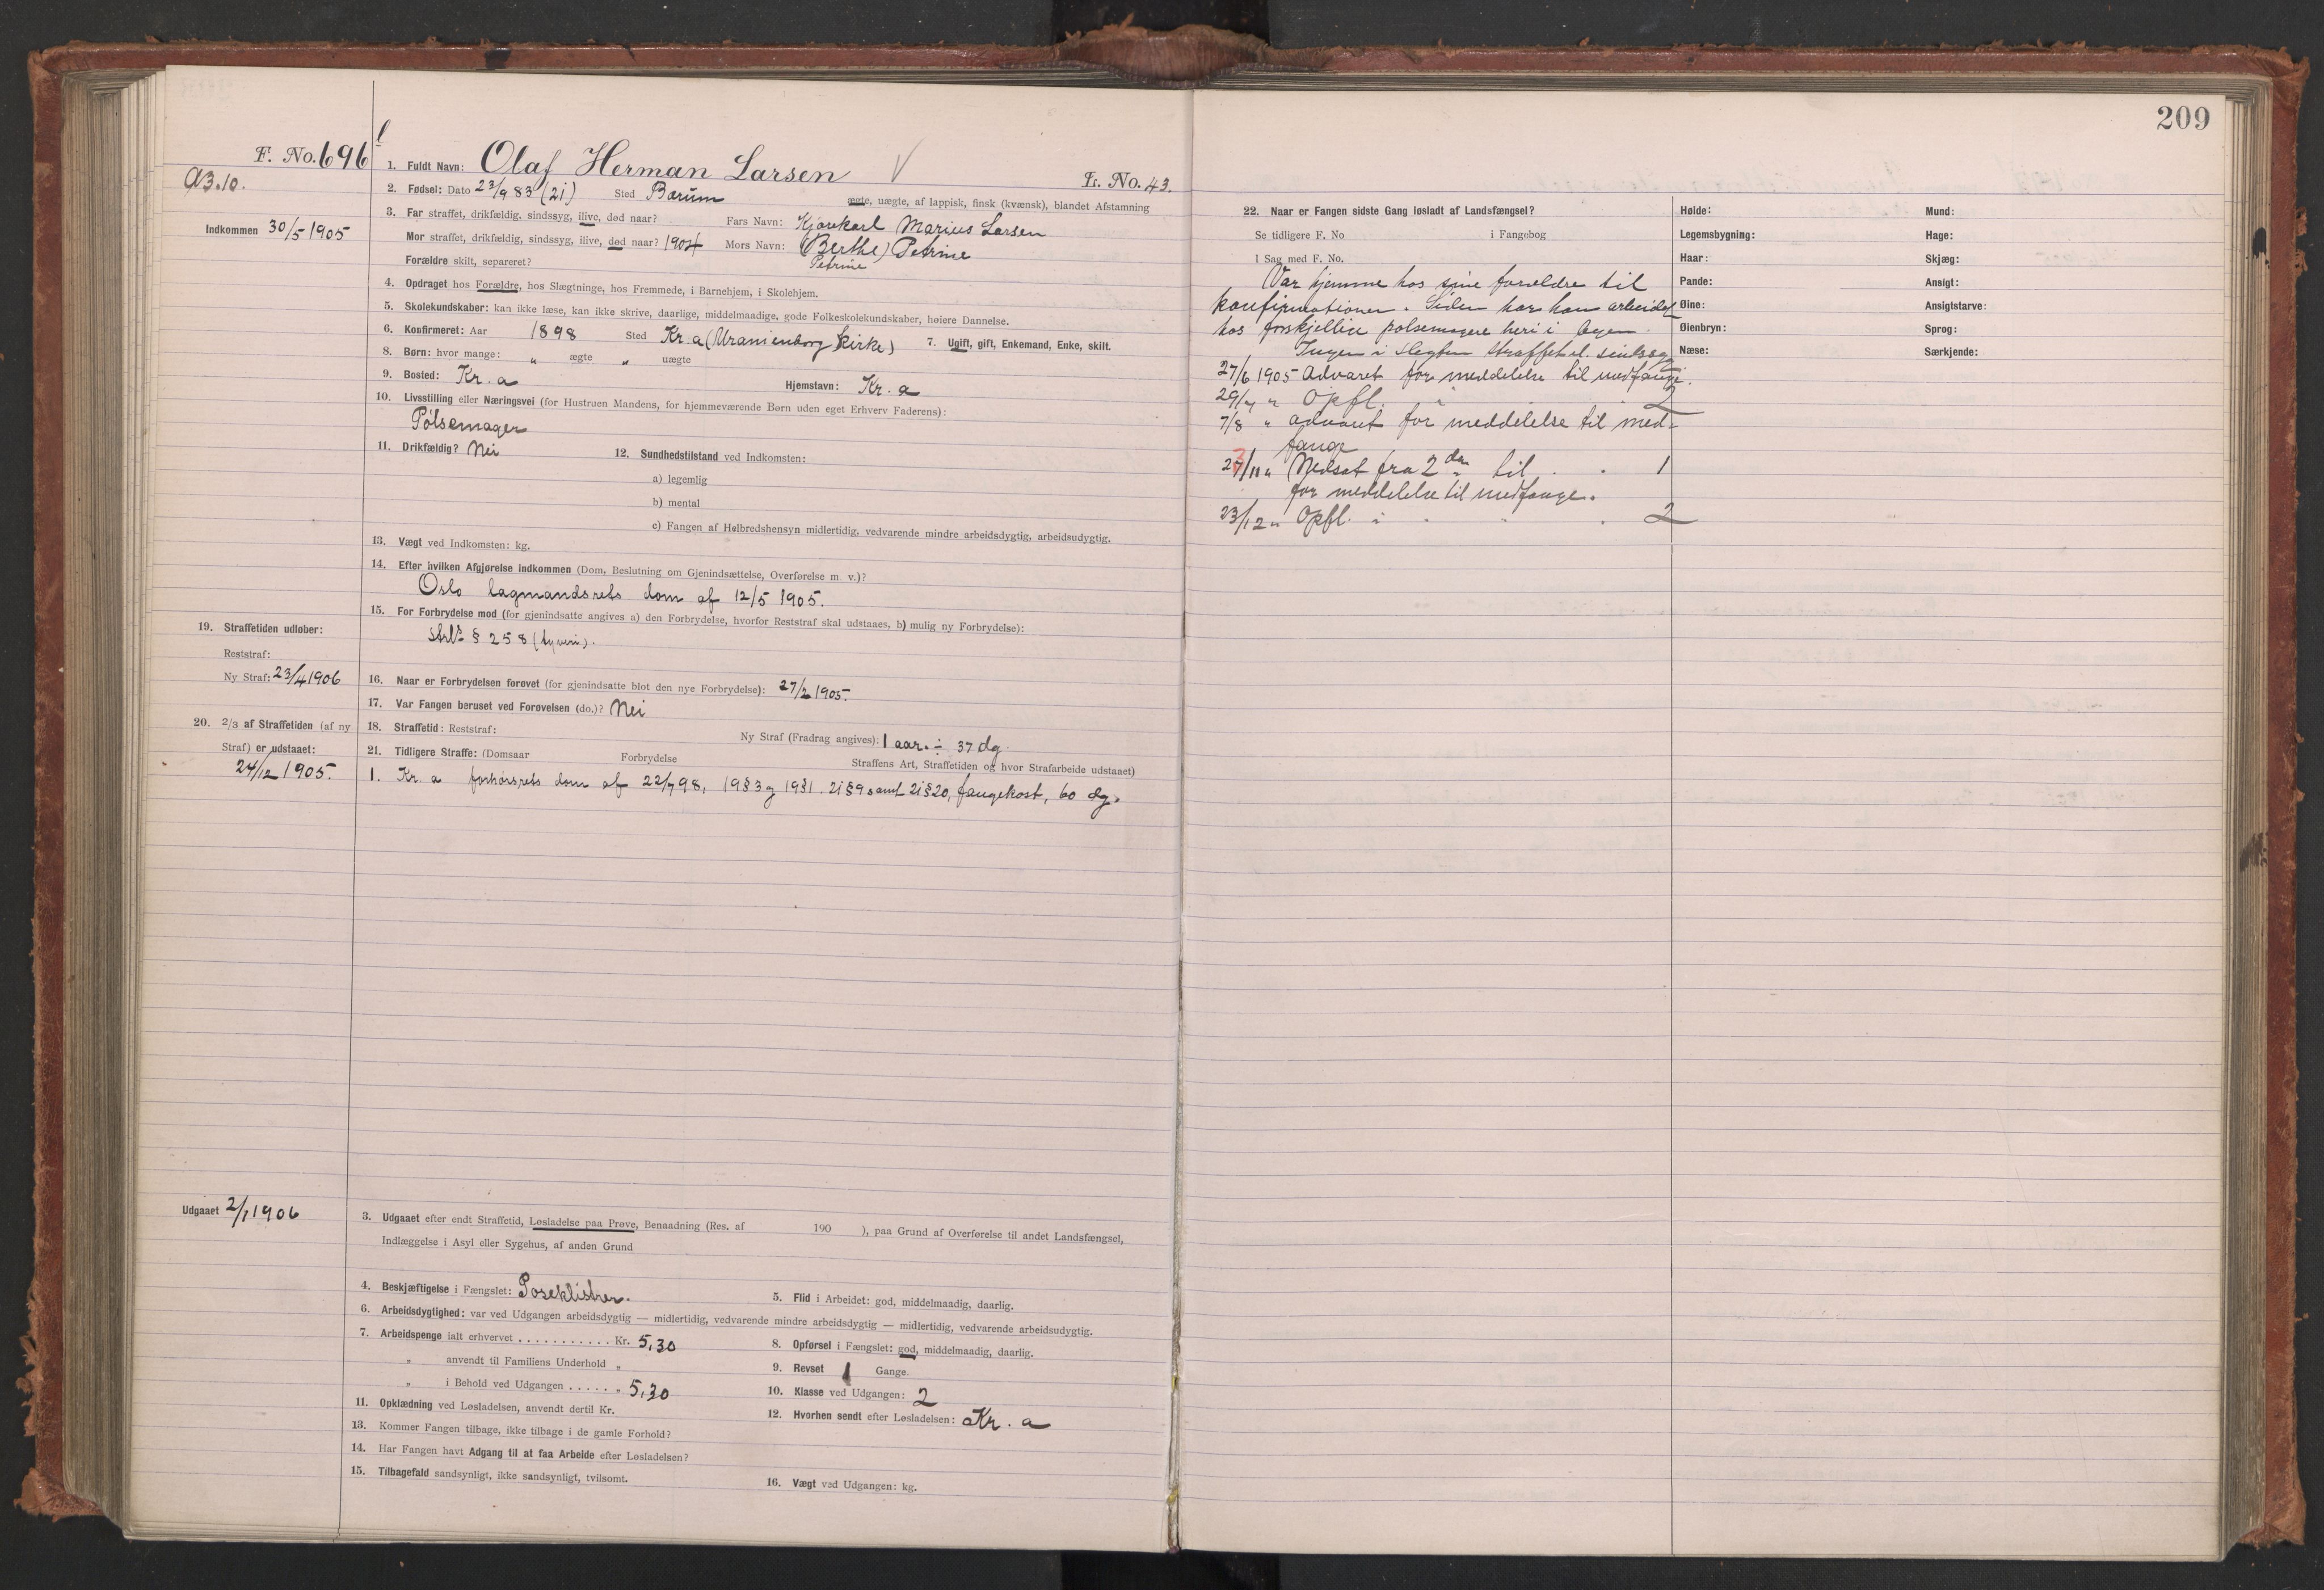 209
F. No. 696
A3.10.
1. Fuldt Navn: Olaf Herman Larsen
Fr. No. 43.
2. Fødsel: Dato 23/9 83 (21) Sted Bærum ægte, uægte, af lappisk, finsk (kvænsk), blandet Afstamning
Indkommen 30/5 1905
3. Far straffet, drikfældig, sindssyg, ilive, død naar? Fars Navn: Kjørekarl Marius Larsen
Mor straffet, drikfældig, sindssyg, ilive, død naar? 1904 Mors Navn: (Berthe) Petrine
Petrine
Forældre skilt, separeret?
4. Opdraget hos Forældre, hos Slægtninge, hos Fremmede, i Barnehjem, i Skolehjem.
5. Skolekundskaber: kan ikke læse, kan ikke skrive, daarlige, middelmaadige, gode Folkeskolekundskaber, høiere Dannelse.
6. Konfirmeret: Aar 1898 Sted Kr.a (Uranienborg kirke) 7. Ugift, gift, Enkemand, Enke, skilt.
8. Børn: hvor mange: „ ægte „ uægte
9. Bosted: Kr.a Hjemstavn: Kr.a
10. Livsstilling eller Næringsvei (for Hustruen Mandens, for hjemmeværende Børn uden eget Erhverv Faderens):
Pølsemager
11. Drikfældig? Nei 12. Sundhedstilstand ved Indkomsten:
a) legemlig
b) mental
c) Fangen af Helbredshensyn midlertidig, vedvarende mindre arbeidsdygtig, arbeidsudygtig.
13. Vægt ved Indkomsten: kg.
14. Efter hvilken Afgjørelse indkommen (Dom, Beslutning om Gjenindsættelse, Overførelse m. v.)?
Oslo lagmandsrets dom af 12/5 1905.
15. For Forbrydelse mod (for gjenindsatte angives a) den Forbrydelse, hvorfor Reststraf skal udstaaes, b) mulig ny Forbrydelse):
strl. § 258 (tyveri).
19. Straffetiden udløber:
Reststraf:
Ny Straf: 23/4 1906
16. Naar er Forbrydelsen forøvet (for gjenindsatte blot den nye Forbrydelse): 27/2 1905.
17. Var Fangen beruset ved Forøvelsen (do.)? Nei
20. 2/3 af Straffetiden (af ny
Straf) er udstaaet:
24/12 1905.
18. Straffetid: Reststraf: Ny Straf (Fradrag angives): 1 aar ÷ 37 dg.
21. Tidligere Straffe: (Domsaar Forbrydelse Straffens Art, Straffetiden og hvor Strafarbeide udstaaet)
1. Kr.a forhørsrets dom af 22/9 98, 19 § 3 og 19 § 1. 21 § 9 samt 21 § 20, fangekost, 60 dg.
Udgaaet 2/1 1906
3. Udgaaet efter endt Straffetid, Løsladelse paa Prøve, Benaadning (Res. af 190 ), paa Grund af Overførelse til andet Landsfængsel,
Indlæggelse i Asyl eller Sygehus, af anden Grund
4. Beskjæftigelse i Fængslet: Poseklistrer. 5. Flid i Arbeidet: god, middelmaadig, daarlig.
6. Arbeidsdygtighed: var ved Udgangen arbeidsdygtig — midlertidig, vedvarende mindre arbeidsdygtig — midlertidig, vedvarende arbeidsudygtig.
7. Arbeidspenge ialt erhvervet . . . . . . . . . . . Kr. 5,30 8. Opførsel i Fængslet: god, middelmaadig, daarlig.
„ anvendt til Familiens Underhold „ 9. Revset 1 Gange.
„ i Behold ved Udgangen . . . . . . „ 5,30 10. Klasse ved Udgangen: 2
11. Opklædning ved Løsladelsen, anvendt dertil Kr. 12. Hvorhen sendt efter Løsladelsen: Kr.a
13. Kommer Fangen tilbage, ikke tilbage i de gamle Forhold?
14. Har Fangen havt Adgang til at faa Arbeide efter Løsladelsen?
15. Tilbagefald sandsynligt, ikke sandsynligt, tvilsomt. 16. Vægt ved Udgangen: kg.
22. Naar er Fangen sidste Gang løsladt af Landsfængsel?
Se tidligere F. No i Fangebog
I Sag med F. No.
Var hjemme hos sine forældre til
konfirmationen. Siden har han arbeidet
hos forskjellige pølsemagere her i byen.
Ingen i slegten straffet el. sindssyg
27/6 1905 Advaret for meddelelse til medfange.
29/7 „ Opfl. i 2
7/8 „ advaret for meddelelse til med-
fange
27/11 „ Nedsat fra 2den til . . 1
for meddelelse til medfange.
23/12 „ Opfl. i 2
Høide: Mund:
Legemsbygning: Hage:
Haar: Skjæg:
Pande: Ansigt:
Øine: Ansigtsfarve:
Øienbryn: Sprog:
Næse: Særkjende: